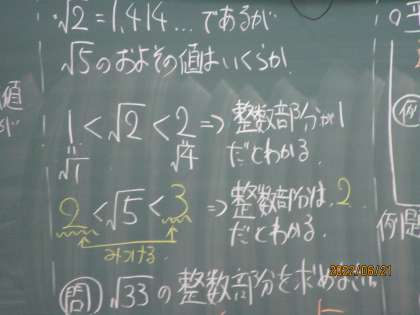 √2 = 1,414...であるが
√5のおよその値はいくらか
1 < √2 < 2 ⇒ 整数部分が1
√1 √4 だとわかる.
2 < √5 < 3 ⇒ 整数部分は、2
みつける だとわかる.
問) √33 の整数部分を求めなさい
値
が
例
例題
2022/06/21